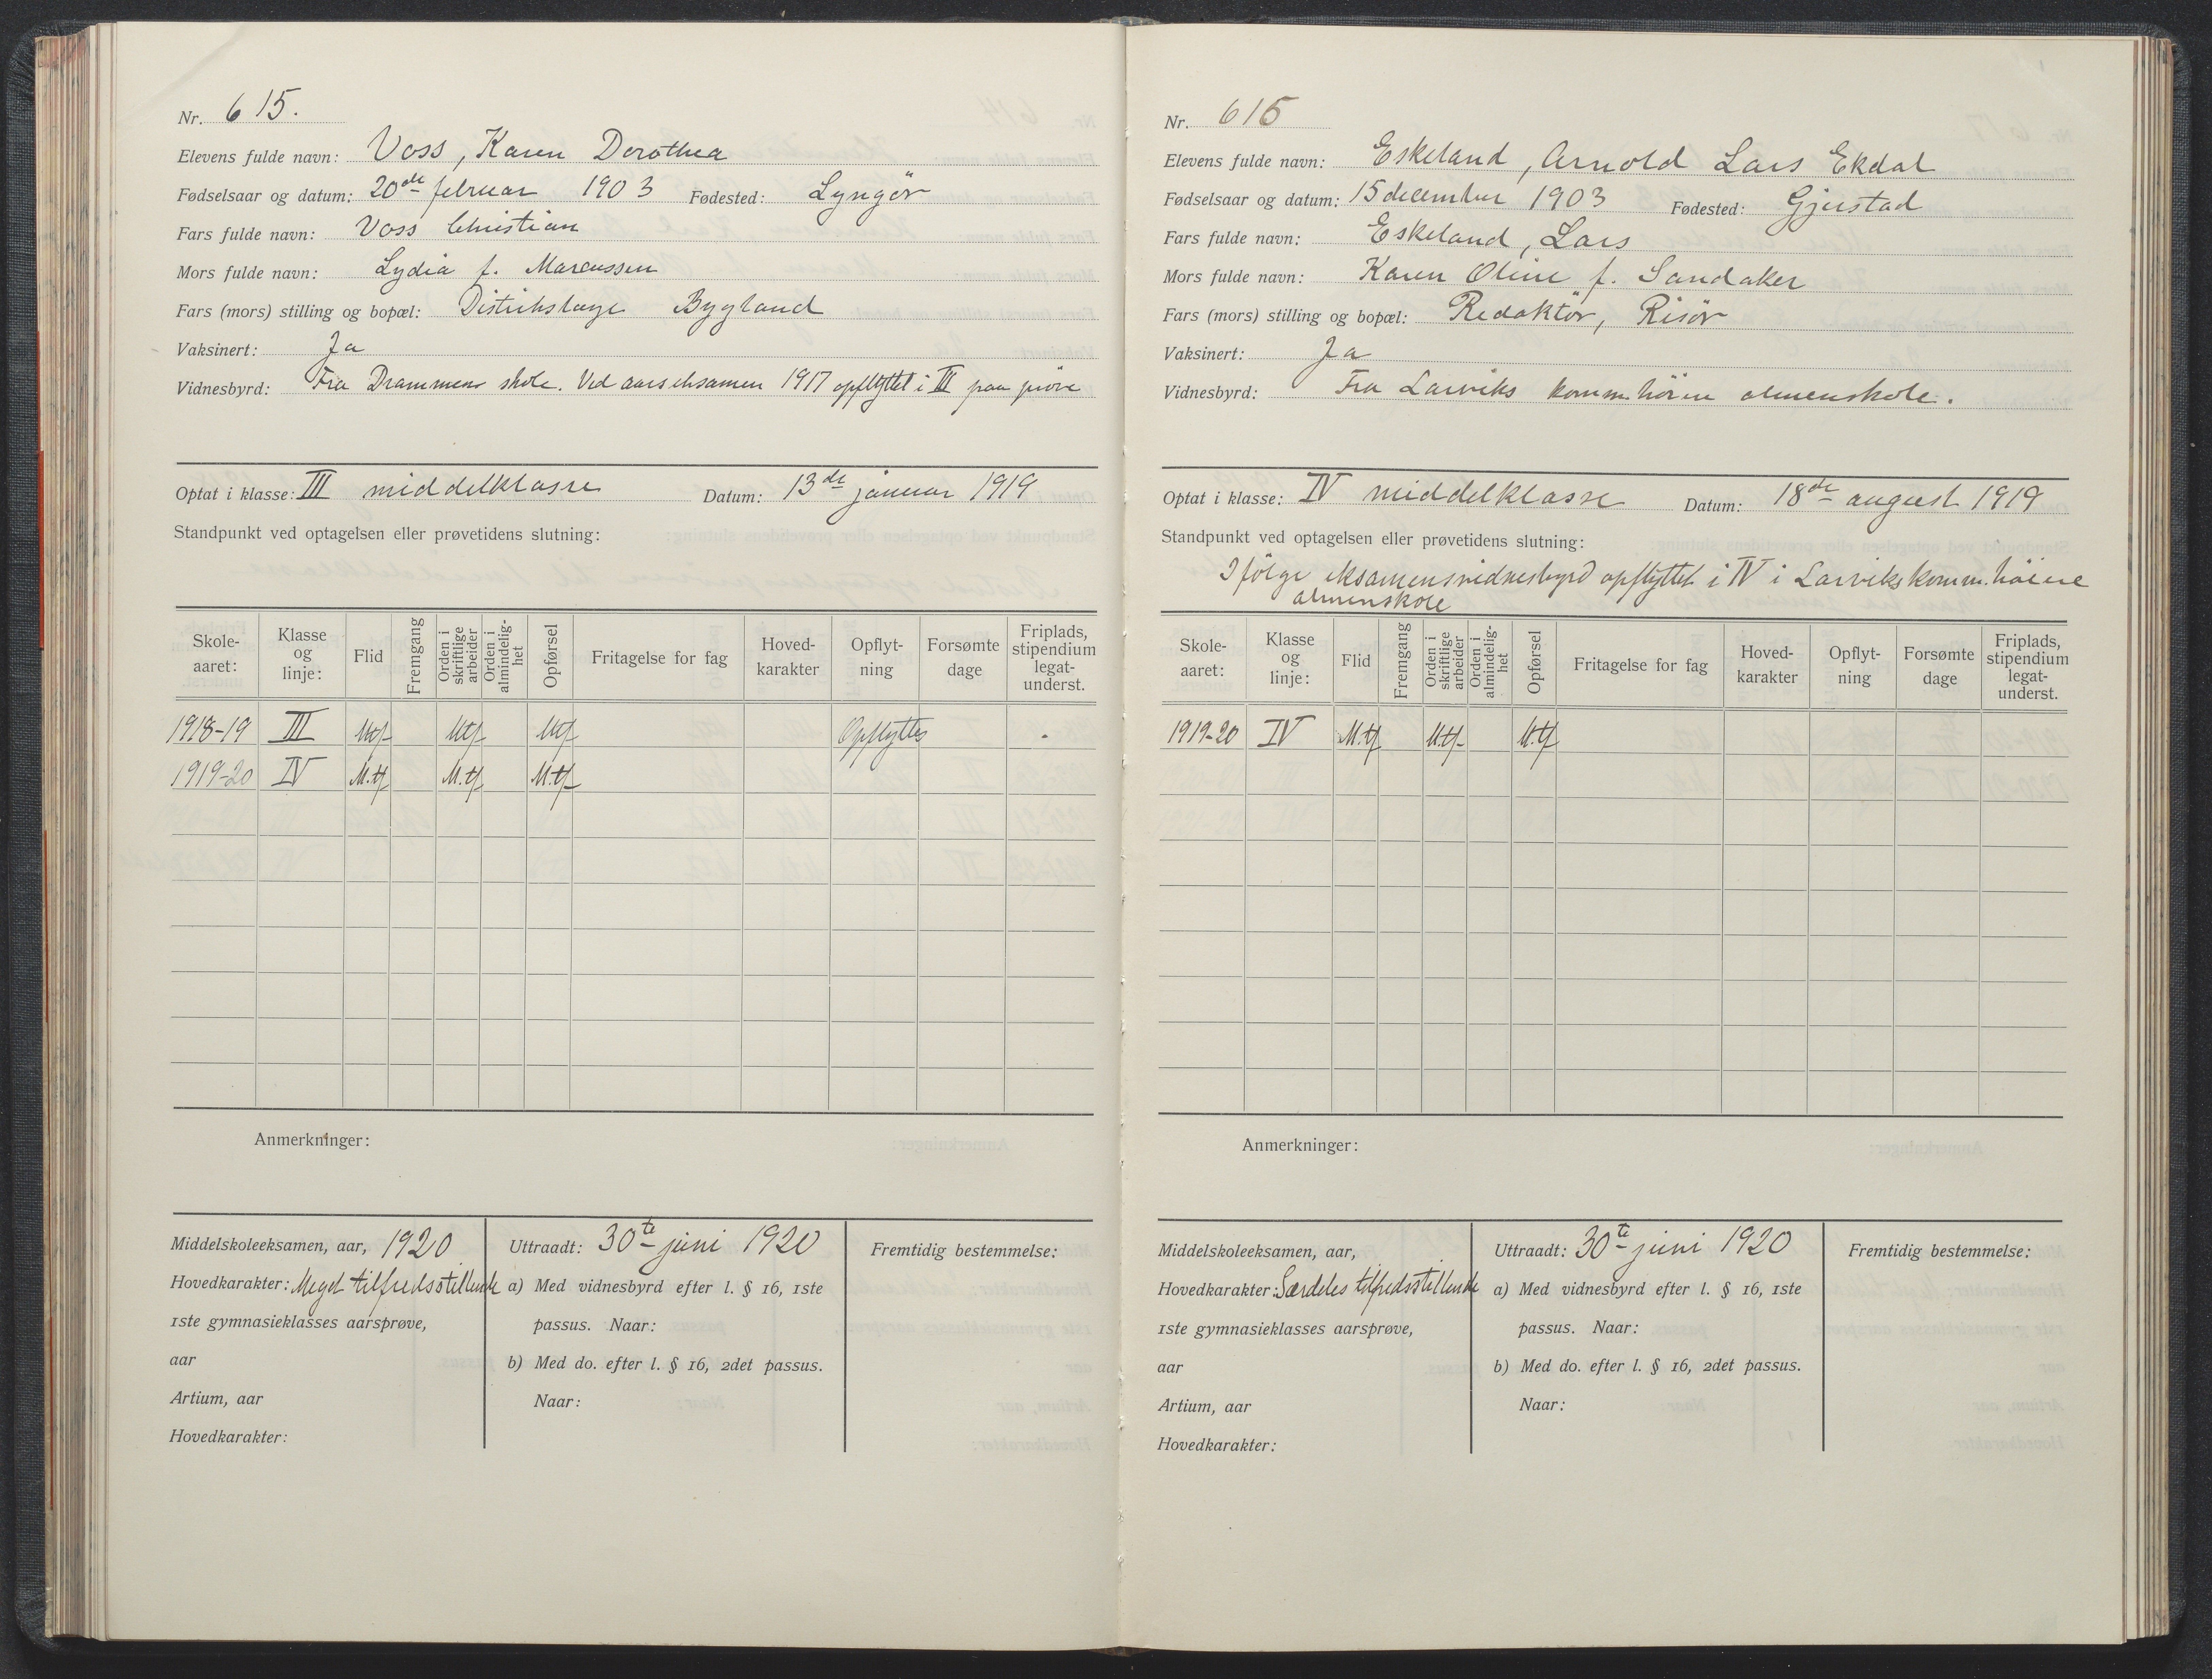 Nr. 615.
Elevens fulde navn: Voss, Karen Dorothea
Fødselsaar og datum: 20de februar 1903 Fødested: Lyngör
Fars fulde navn: Voss Christian
Mors fulde navn: Lydia f. Marcussen
Fars (mors) stilling og bopæl: Distriktslæge Bygland
Vaksinert: Ja
Vidnesbyrd: Fra Drammens skole. Ved aarseksamen 1917 opflyttet i III paa prøve
Optat i klasse: III middelklasse Datum: 13de januar 1919
Standpunkt ved optagelsen eller prøvetidens slutning:
Skole-aaret: Klasse og linje: Flid Fremgang Orden i skriftlige arbeider Orden i almindelig-het Opførsel Fritagelse for fag Hoved-karakter Opflyt-ning Forsømte dage Friplads, stipendium legat-underst.
1918-19 III Mtf Mtf Mtf Opflyttes -
1919-20 IV M.tf M.tf M.tf
Anmerkninger:
Middelskoleeksamen, aar, 1920
Hovedkarakter: Meget tilfredsstillende
1ste gymnasieklasses aarsprøve,
aar
Artium, aar
Hovedkarakter:
Uttraadt: 30te juni 1920
a) Med vidnesbyrd efter l. § 16, 1ste
passus. Naar:
b) Med do. efter l. § 16, 2det passus.
Naar:
Fremtidig bestemmelse:
Nr. 616
Elevens fulde navn: Eskeland, Arnold Lars Ekdal
Fødselsaar og datum: 15 december 1903 Fødested: Gjerstad
Fars fulde navn: Eskeland, Lars
Mors fulde navn: Karen Oline f. Sandaker
Fars (mors) stilling og bopæl: Redaktör, Risör
Vaksinert: Ja
Vidnesbyrd: Fra Larviks komm. höiere almenskole.
Optat i klasse: IV middelklasse Datum: 18de august 1919
Standpunkt ved optagelsen eller prøvetidens slutning:
I fölge eksamensvidnesbyrd opflyttet i IV i Larviks komm. höiere
almenskole
Skole-aaret: Klasse og linje: Flid Fremgang Orden i skriftlige arbeider Orden i almindelig-het Opførsel Fritagelse for fag Hoved-karakter Opflyt-ning Forsømte dage Friplads, stipendium legat-underst.
1919-20 IV M.tf M.tf M.tf
Anmerkninger:
Middelskoleeksamen, aar,
Hovedkarakter: Særdeles tilfredsstillende
1ste gymnasieklasses aarsprøve,
aar
Artium, aar
Hovedkarakter:
Uttraadt: 30te juni 1920
a) Med vidnesbyrd efter l. § 16, 1ste
passus. Naar:
b) Med do. efter l. § 16, 2det passus.
Naar:
Fremtidig bestemmelse: